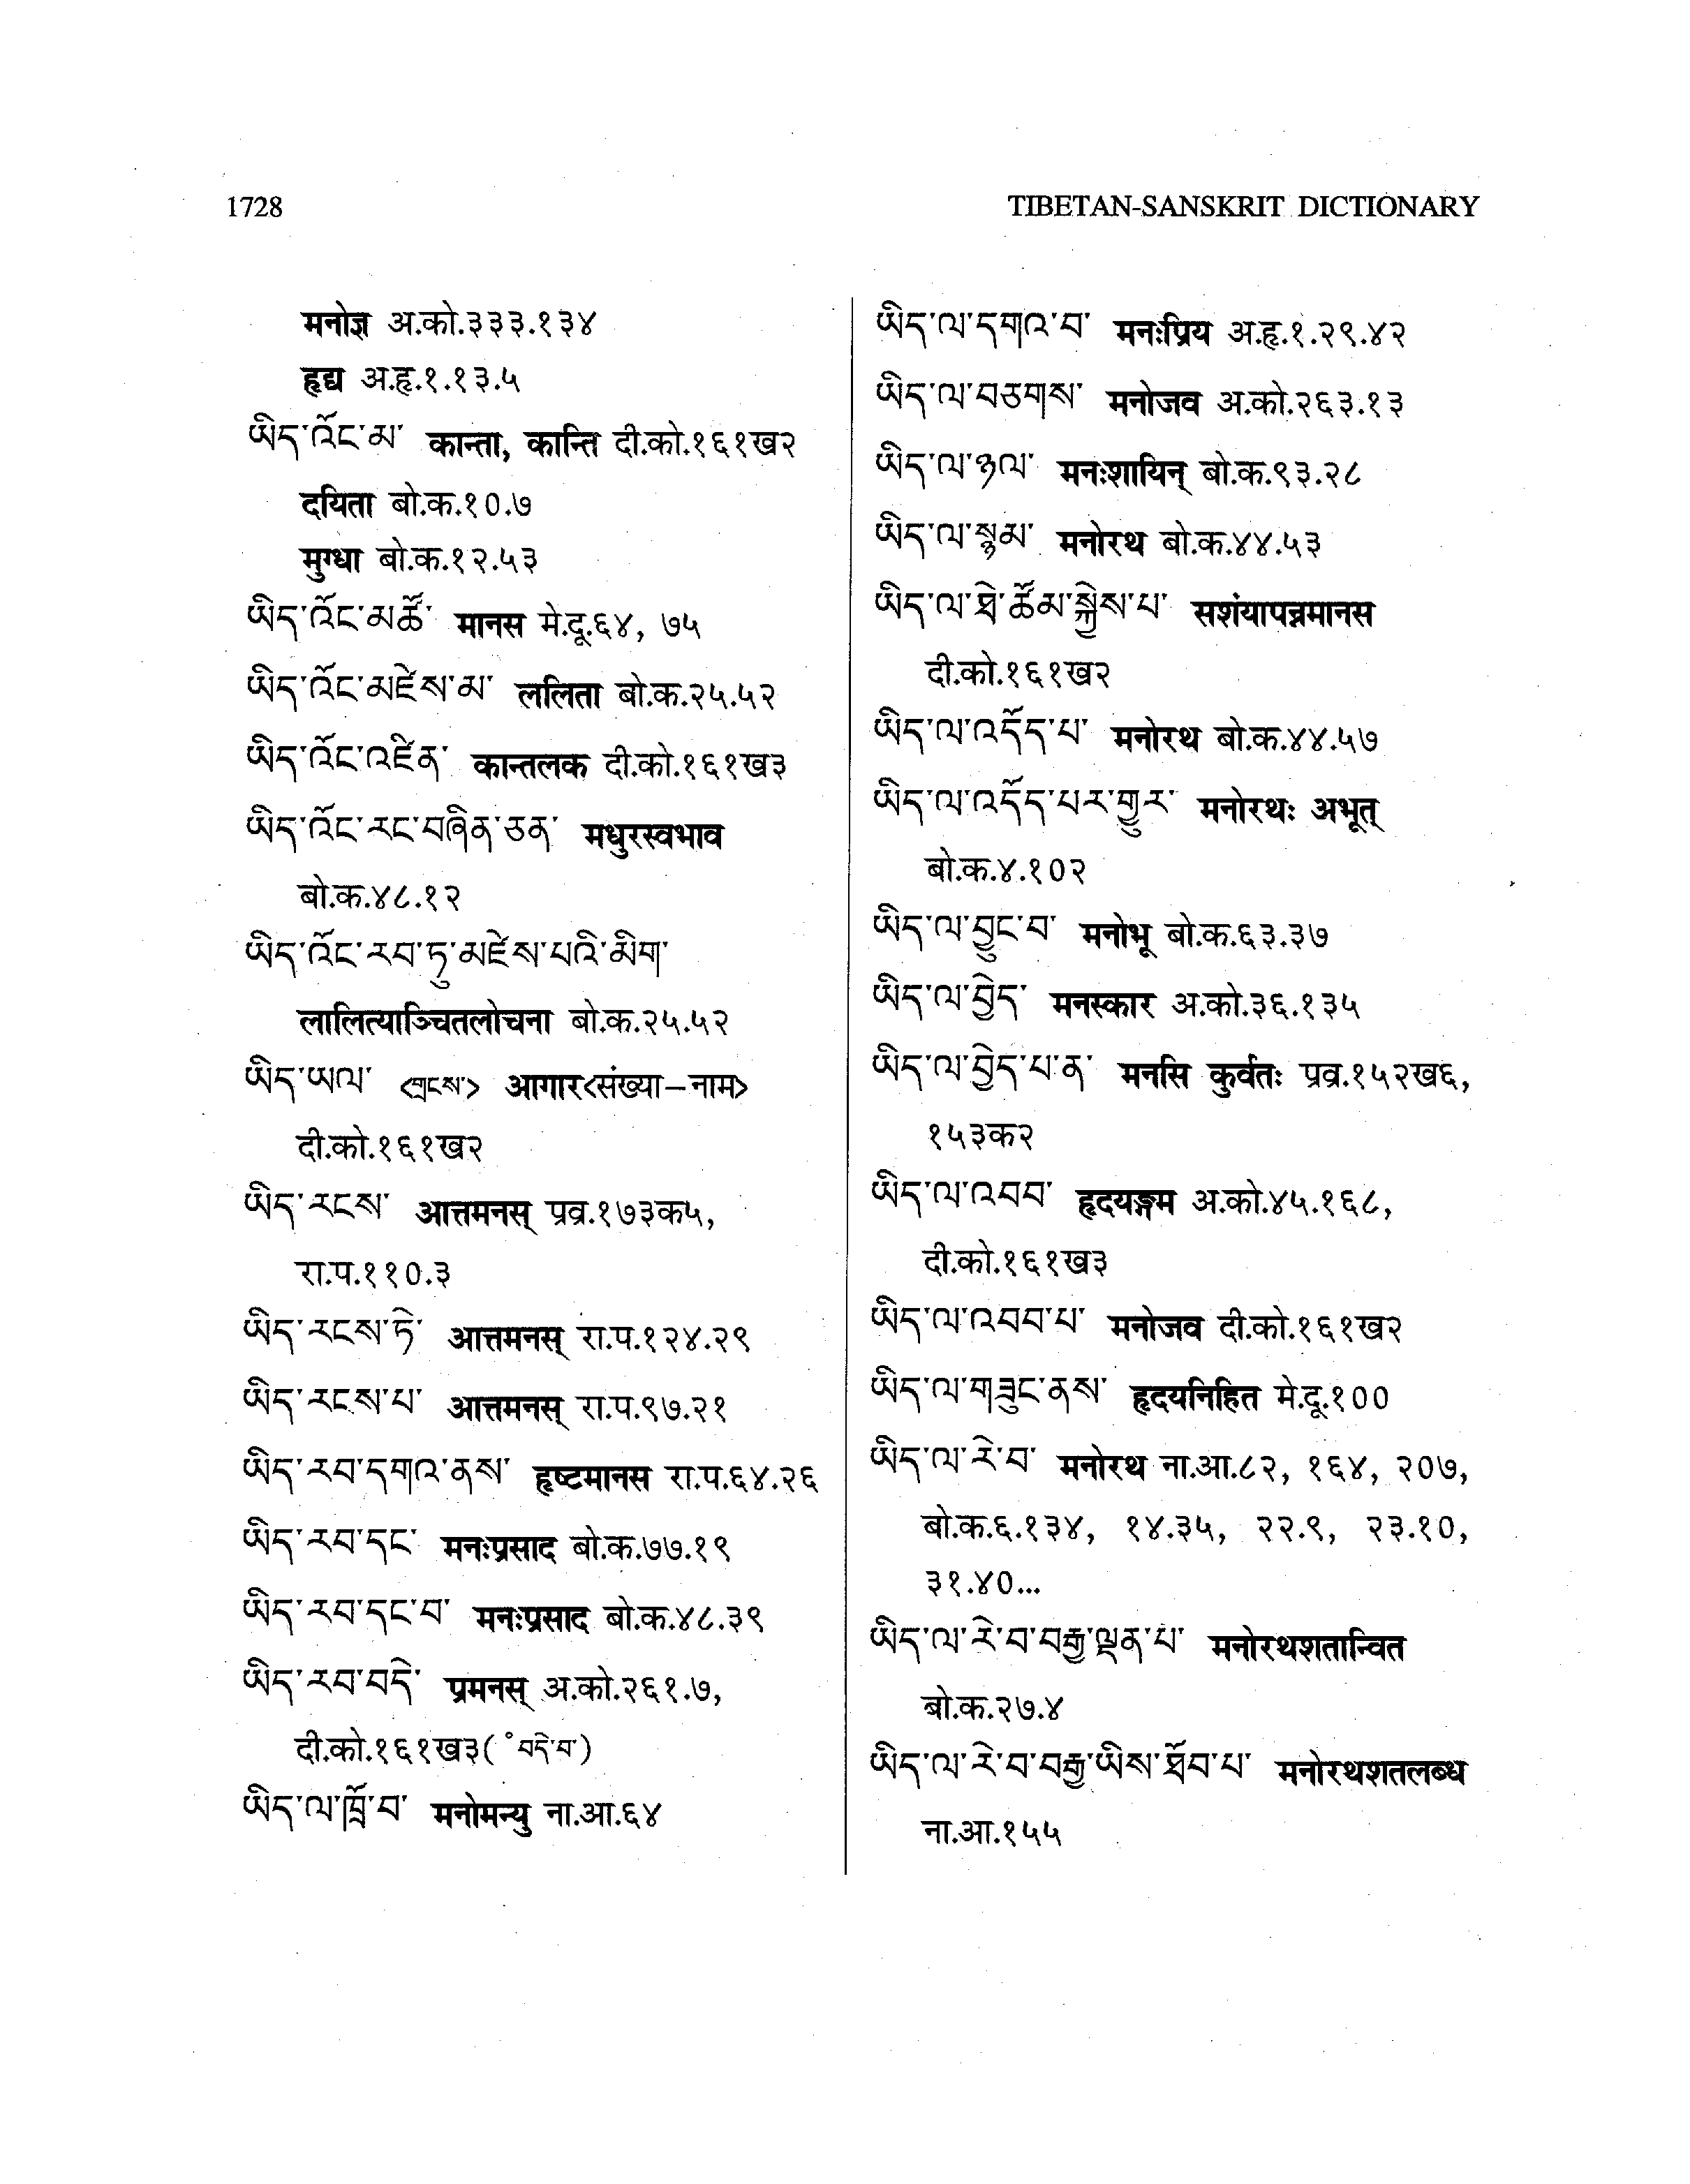 1728
TIBETAN-SANSKRIT DICTIONARY
मनोज्ञ अ.को.३३३.१३४
हृद्य अ.हृ.१.१३.५
ཡིད་འོང་མ་ कान्ता, कान्ति दी.को.१६१ख२
दयिता बो.क.१०.७
मुग्धा बो.क.१२.५३
ཡིད་འོང་མཚོ་ मानस मे.दू.६४, ७५
ཡིད་འོང་མཛེས་མ་ ललिता बो.क.२५.५२
ཡིད་འོང་འཛིན་ कान्तलक दी.को.१६१ख३
ཡིད་འོང་རང་བཞིན་ཅན་ मधुरस्वभाव
बो.क.४८.१२
ཡིད་འོང་རབ་ཏུ་མཛེས་པའི་མིག་
लालित्याञ्चितलोचना बो.क.२५.५२
ཡིད་ཡལ་ <གྲངས་> आगार<संख्या-नाम>
दी.को.१६१ख२
ཡིད་རངས་ आत्तमनस् प्रव्र.१७३क५,
रा.प.११०.३
ཡིད་རངས་ཏེ་ आत्तमनस् रा.प.१२४.२९
ཡིད་རངས་པ་ आत्तमनस् रा.प.९७.२१
ཡིད་རབ་དགའ་ནས་ हृष्टमानस रा.प.६४.२६
ཡིད་རབ་དང་ मनःप्रसाद बो.क.७७.१९
ཡིད་རབ་དང་བ་ मनःप्रसाद बो.क.४८.३९
ཡིད་རབ་བདེ་ प्रमनस् अ.को.२६१.७,
दी.को.१६१ख३(॰བདེ་བ་)
ཡིད་ལ་ཁྲོ་བ་ मनोमन्यु ना.आ.६४
ཡིད་ལ་དགའ་བ་ मनःप्रिय अ.हृ.१.२९.४२
ཡིད་ལ་བཅགས་ मनोजव अ.को.२६३.१३
ཡིད་ལ་ཉལ་ मनःशायिन् बो.क.९३.२८
ཡིད་ལ་སྙམ་ मनोरथ बो.क.४४.५३
ཡིད་ལ་ཐེ་ཚོམ་སྐྱེས་པ་ सशंयापन्नमानस
दी.को.१६१ख२
ཡིད་ལ་འདོད་པ་ मनोरथ बो.क.४४.५७
ཡིད་ལ་འདོད་པར་གྱུར་ मनोरथः अभूत्
बो.क.४.१०२
ཡིད་ལ་བྱུང་བ་ मनोभू बो.क.६३.३७
ཡིད་ལ་བྱེད་ मनस्कार अ.को.३६.१३५
ཡིད་ལ་བྱེད་པ་ན་ मनसि कुर्वतः प्रव्र.१५२ख६,
१५३क२
ཡིད་ལ་འབབ་ हृदयङ्गम अ.को.४५.१६८,
दी.को.१६१ख३
ཡིད་ལ་འབབ་པ་ मनोजव दी.को.१६१ख२
ཡིད་ལ་གཟུང་ནས་ हृदयनिहित मे.दू.१००
ཡིད་ལ་རེ་བ་ मनोरथ ना.आ.८२, १६४, २०७,
बो.क.६.१३४, १४.३५, २२.९, २३.१०,
३१.४०...
ཡིད་ལ་རེ་བ་བརྒྱ་ལྡན་པ་ मनोरथशतान्वित
बो.क.२७.४
ཡིད་ལ་རེ་བ་བརྒྱ་ཡིས་ཐོབ་པ་ मनोरथशतलब्ध
ना.आ.१५५